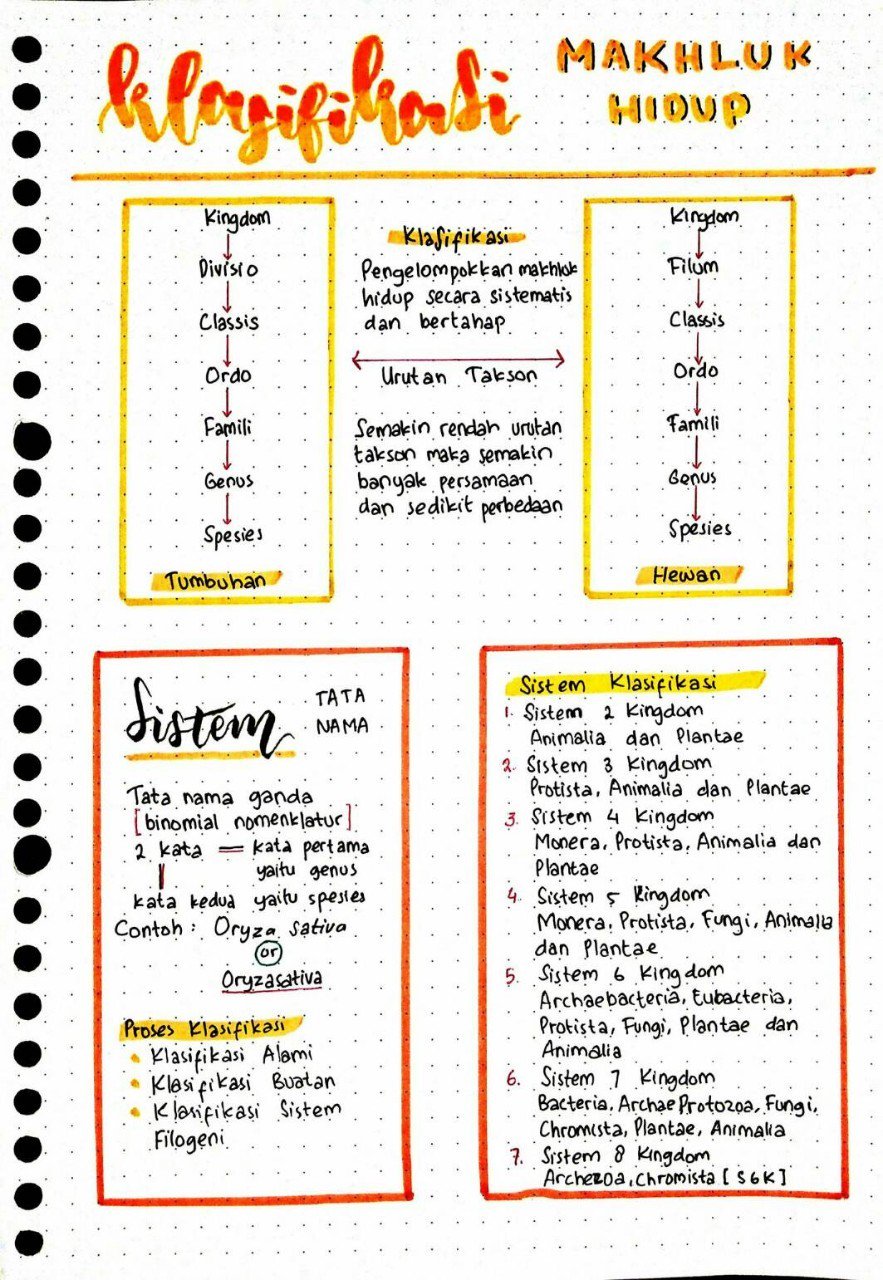 Klasifikasi
MAKHLUK
HIDUP
Kingdom
Divisio
Classis
Ordo
Famili
Genus
Spesies
Tumbuhan
Klasifikasi
Pengelompokkan makhluk
hidup secara sistematis
dan bertahap
Urutan Takson
Semakin rendah urutan
takson maka semakin
banyak persamaan
dan sedikit perbedaan
Kingdom
Filum
Classis
Ordo
Famili
Genus
Spesies
Hewan
Sistem
TATA
NAMA
Tata nama ganda
[binomial nomenklatur]
2 kata = kata pertama
yaitu genus
kata kedua yaitu spesies
Contoh : Oryza sativa
or
Oryzasativa
Proses Klasifikasi
• Klasifikasi Alami
• Klasifikasi Buatan
• Klasifikasi Sistem
Filogeni
Sistem Klasifikasi
1. Sistem 2 Kingdom
Animalia dan Plantae
2. Sistem 3 Kingdom
Protista, Animalia dan Plantae
3. Sistem 4 Kingdom
Monera, Protista, Animalia dan
Plantae
4. Sistem 5 Kingdom
Monera, Protista, Fungi, Animalia
dan Plantae
5. Sistem 6 Kingdom
Archaebacteria, Eubacteria,
Protista, Fungi, Plantae dan
Animalia
6. Sistem 7 Kingdom
Bacteria, Archae Protozoa, Fungi,
Chromista, Plantae, Animalia
7. Sistem 8 Kingdom
Archezoa, Chromista [S6K]